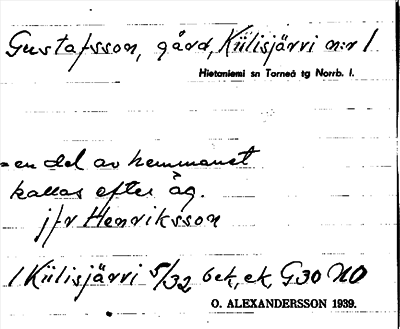 Gustafsson, gård, Kiilisjärvi n:r 1
Hietaniemi sn Torneå tg Norrb. l.
= en del av hemmanet
kallas efter äg.
jfr Henriksson
/ Kiilisjärvi 5/32 bek, ek, G30 NO
O. ALEXANDERSSON 1939.